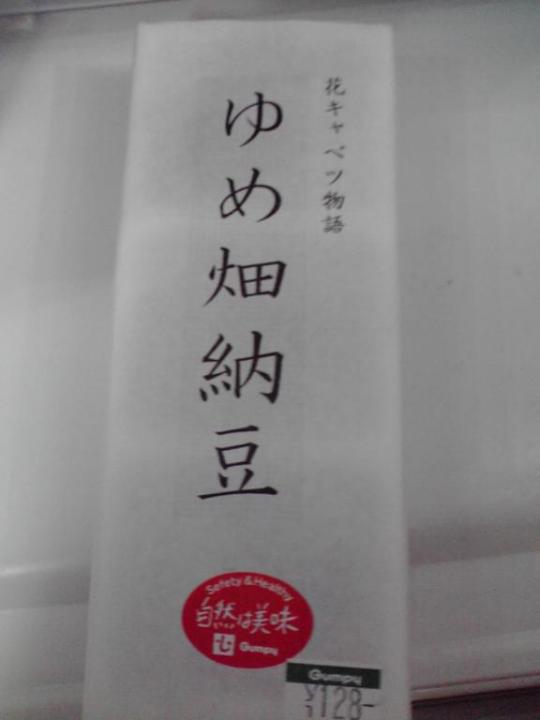 花キャベツ物語
ゆめ畑納豆
Safety & Healthy
自然は美味
Gumpy
Gumpy
¥128-